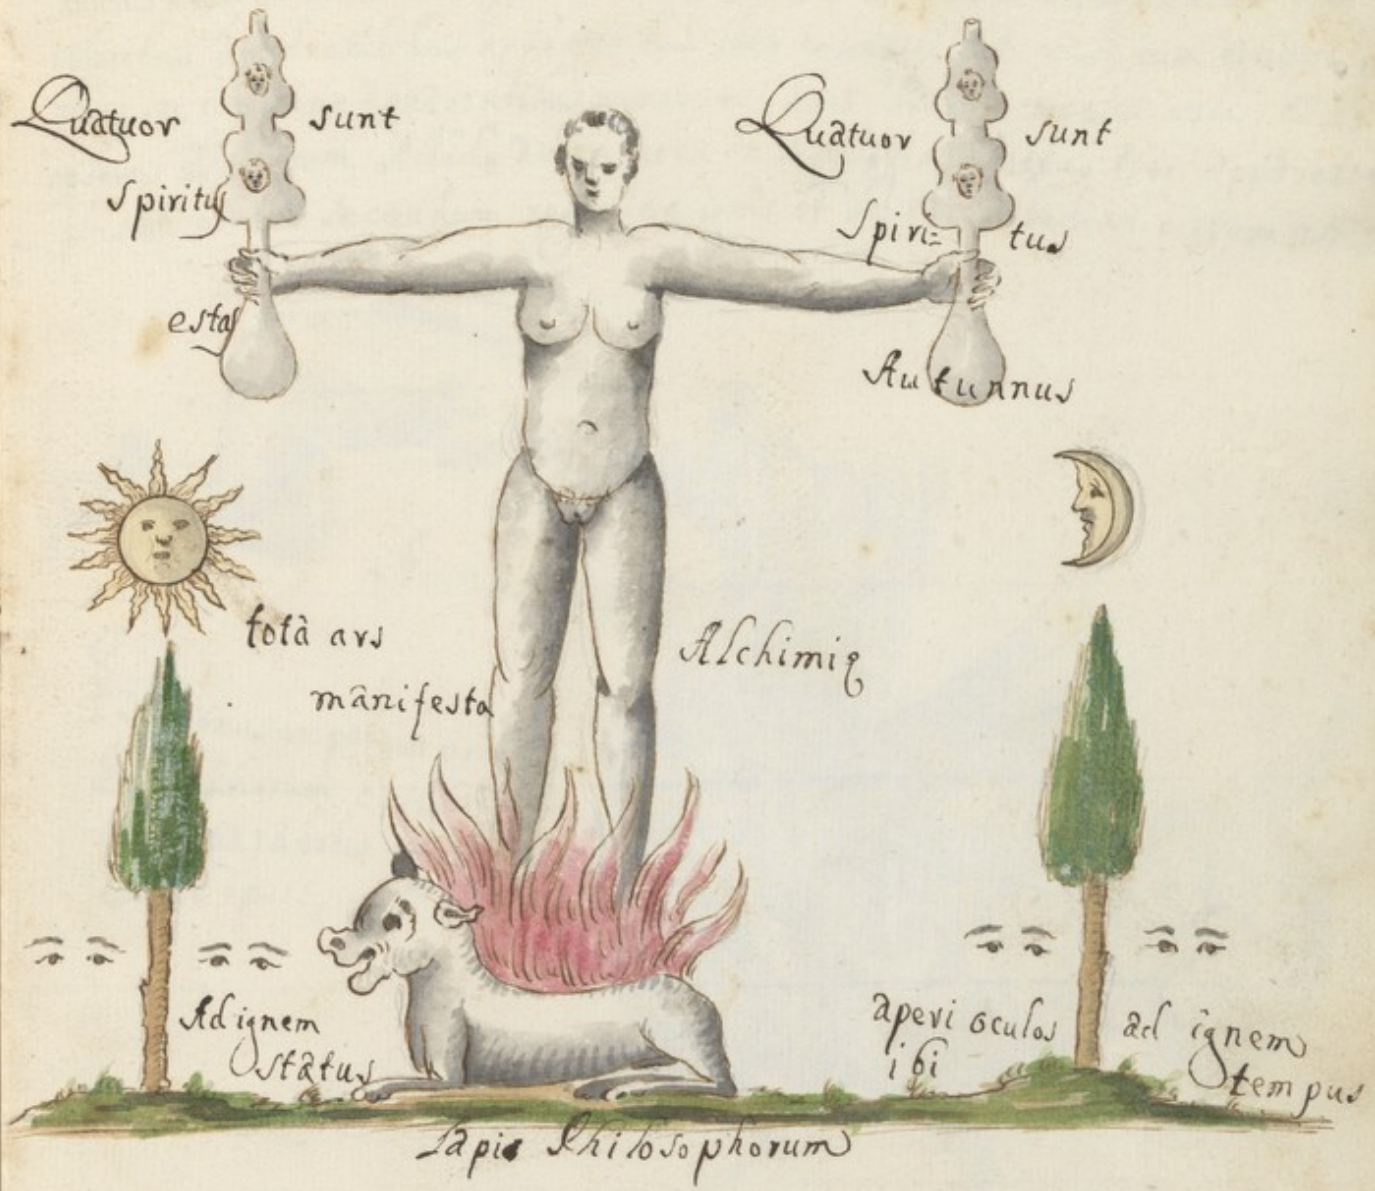 Quatuor sunt
Spiritus
estas
Quatuor sunt
Spiri=tus
Autunnus
totâ ars
mânifesta
Alchimię
Ad ignem
stâtus
aperi oculos
ibi
ad ignem
tempus
Lapis Philosophorum